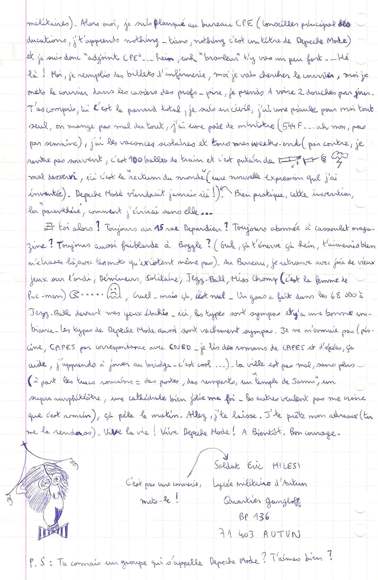 militaires). Alors moi, je suis planqué au bureau CPE (conseiller principal de
ducations, j't'apprends nothing - tiens, nothing c'est un titre de Depeche Mode)
et je suis donc "adjoint CPE"... hein, euh "branleur" t'y vas un peu fort... Hé
là ! Moi, je remplis des billets d'infirmerie, moi je vais chercher le courrier, moi je
mets le courrier dans les casiers des profs, je prends à voire 2 douches par jour.
T'as compris, ici c'est le panard total, je suis en civil, j'ai une piaule pour moi tout
seul, on mange pas mal du tout, j'ai une paie de ministre (544F... ah non, pas
par semaine), j'ai les vacances scolaires et tous mes week-ends (par contre, je
rentre pas souvent, c'est 100 balles de train et c'est putain de
mal desservi, ici c'est le "rectum du monde" (une nouvelle expression que j'ai
inventée). Depeche Mode viendrait jamais ici !). Bien pratique, cette invention,
la "parenthèse", comment j'écrirais sans elle...
Et toi alors ? Toujours au 15 rue Depardieu ? Toujours abonné à cassoulet maga-
zine ? Toujours aussi friable à Boggle ? (Gnl, ça t'énerve ça hein, t'aimerais bien
m'écraser là, avec des mots qu'existent même pas). Au Bureau, je retrouve avec joie de vieux
jeux sur l'ordi, Démineur, Solitaire, Jezz-Ball, Miss Chomp (c'est la femme de
Pac-man) Gruel - mais ça, c'est nul - Un gars a fait dans les 65 000 à
Jezz-Ball devant mes yeux ébahis - ici, les types sont sympas et y'a une bonne am-
biance - les types de Depeche Mode aussi sont vachement sympas. Je ne m'ennuie pas (pis-
cine, CAPES par correspondance avec CNED - je lis des romans de CAPES et d'épées, ça
aide, j'apprends à jouer au bridge - c'est cool...) - la ville est pas mal, sans plus -
(à part les trucs romains = des portes, des remparts, un temple de Janus, un
super amphithéâtre, une cathédrale bien jolie ma foi - les autres veulent pas me croire
que c'est romain), ça pèle le matin. Allez, j'te laisse. J'te prête mon adresse (tu
me la rendras). Vive la vie ! Vive Depeche Mode ! A Bientôt. Bon courage.
Soldat Eric MILESI
C'est pas une connerie,
mate-le !
Lycée militaire d'Autun
Quartier Gangloff
BP 136
71 403 AUTUN
P.S : Tu connais un groupe qui s'appelle Depeche Mode ? T'aimes bien ?